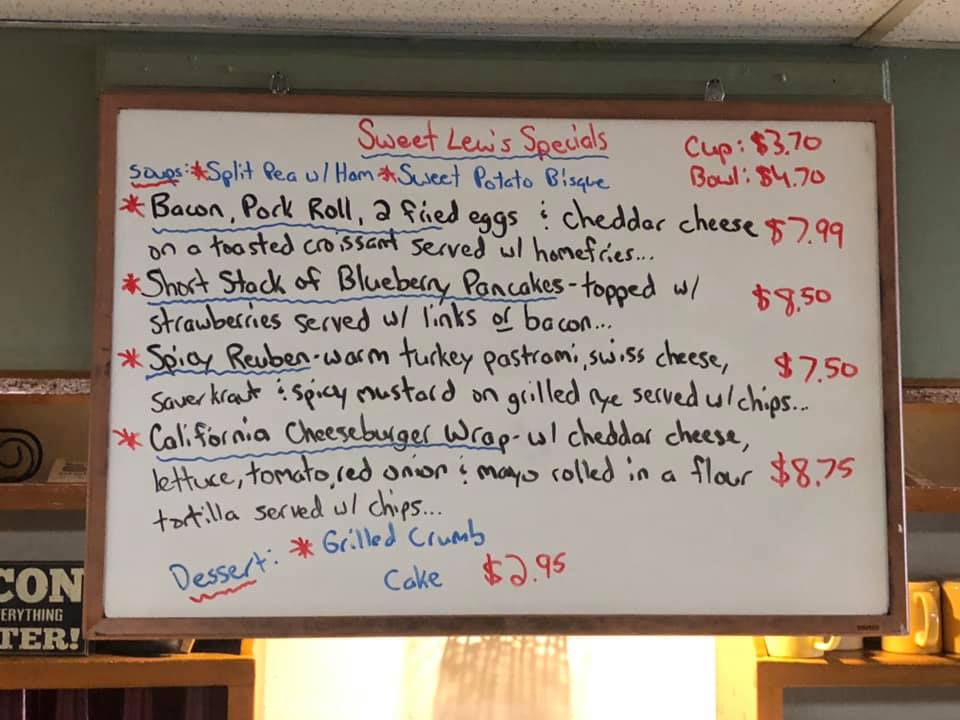 Sweet Lew's Specials
Cup: $3.70
Soups: *Split Pea w/ Ham *Sweet Potato Bisque
Bowl: $4.70
* Bacon, Pork Roll, 2 fried eggs & cheddar cheese $7.99
on a toasted croissant served w/ homefries...
* Short Stack of Blueberry Pancakes - topped w/
$8.50
strawberries served w/ links or bacon...
* Spicy Reuben - warm turkey pastrami, swiss cheese,
$7.50
sauerkraut & spicy mustard on grilled rye served w/ chips...
* California Cheeseburger Wrap - w/ cheddar cheese,
lettuce, tomato, red onion & mayo rolled in a flour $8.75
tortilla served w/ chips...
Dessert: * Grilled Crumb
Cake $2.95
CON
ERYTHING
TER!